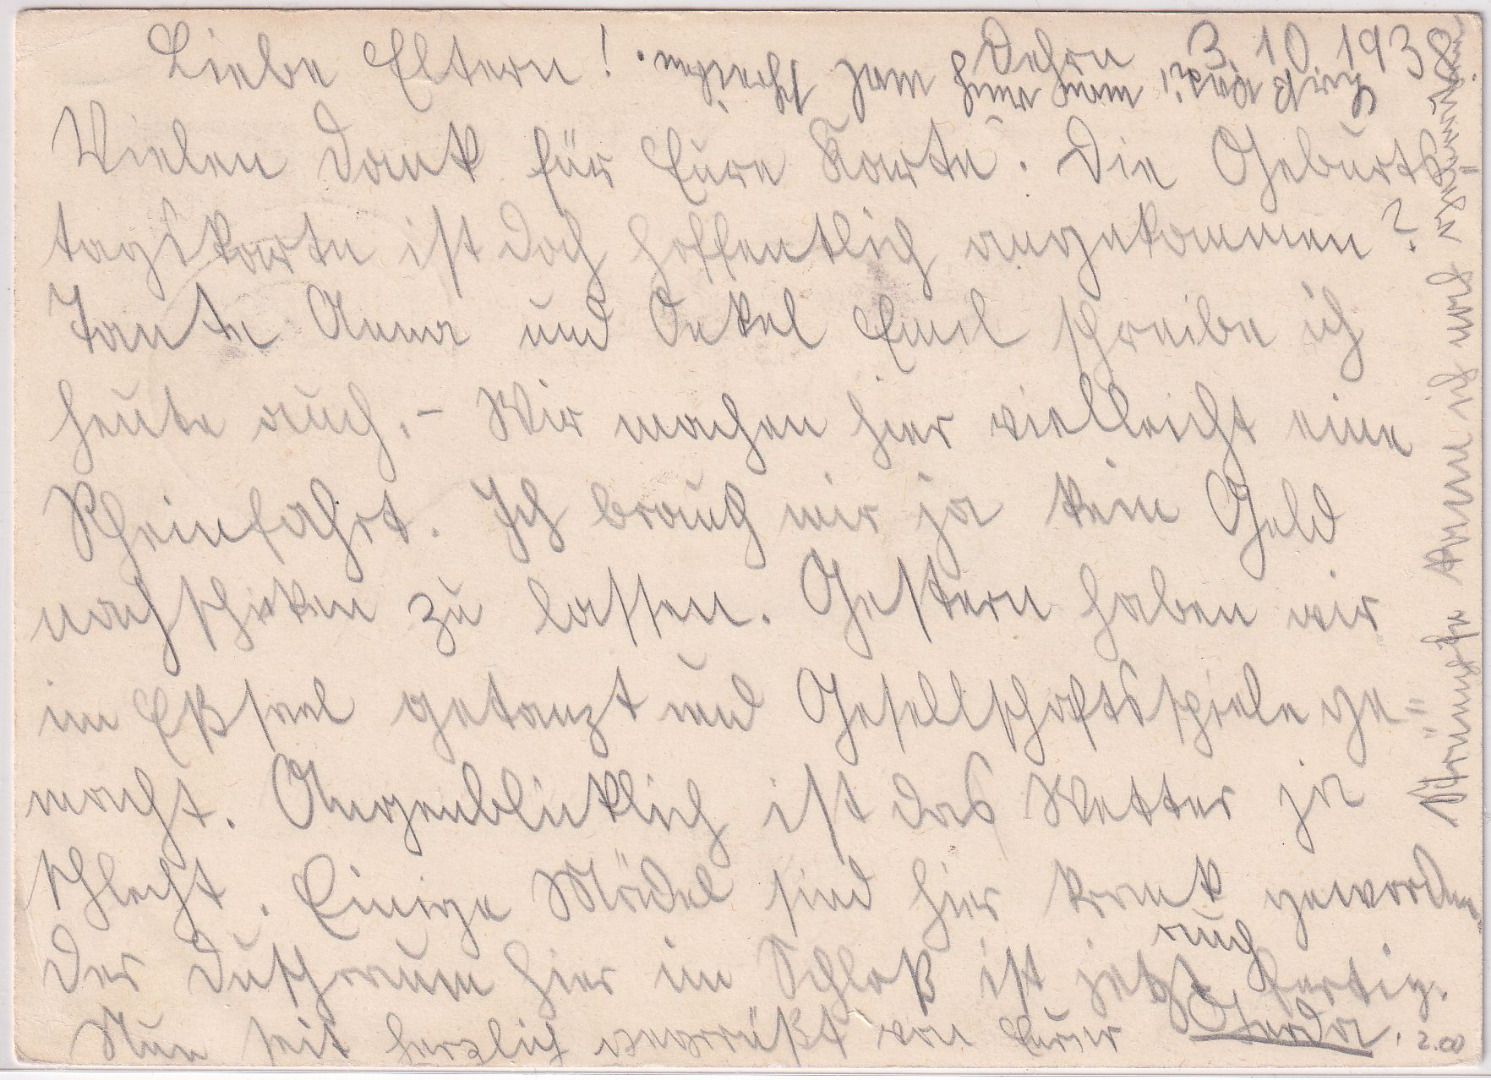 Dehrn 3.10.1938.
Liebe Eltern!
Vielen Dank für Eure Karte. Die Geburts=
tagskarte ist doch hoffentlich angekommen?
Tante Anna und Onkel Emil schreibe ich
heute auch. – Wir machen hier vielleicht eine
Rheinfahrt. Ich brauch mir ja kein Geld
nachschicken zu lassen. Gestern haben wir
im Eßsaal getanzt und Gesellschaftsspiele ge=
macht. Augenblicklich ist das Wetter ja
schlecht. Einige Mädel sind hier krank geworden.
Der Duschraum hier im Schloß ist jetzt auch fertig.
Nun seit herzlich gegrüßt von Eurer Gerda.
2.00
kann ich noch
mal schreiben.